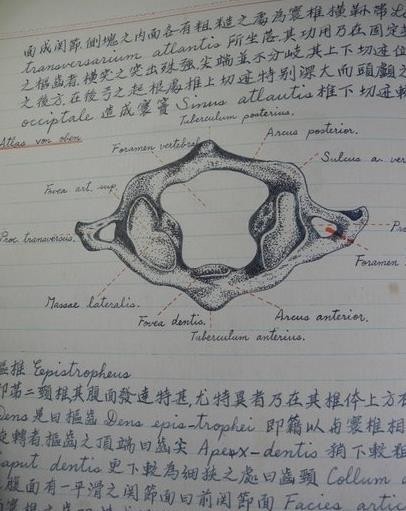 面成关節.側塊之内面各有粗糙之處為寰椎橫靱帶
transversarium atlantis 所坐落.其功用乃在固定
之樞齒者.橫突之突出殊強尖端並不分岐.其上下切迹位
之後方.在後弓之起根處椎上切迹特別深大而頭顱之
occiptale 造成寰竇 Sinus atlautis 椎下切迹較
Tuberculum posterius.
Atlas von oben
Foramen vertebral
Arcus posterior.
Sulcus a. ver
Fovea art. sup.
Proc. transversus.
Pro
Foramen
Massae lateralis.
Arcus anterior.
Fovea dentis.
Tuberculum anterius.
樞椎 Eepistropheus
即第二頸椎其腹面發達特甚.尤特異者乃在其椎体上方有
Dens 是曰樞齒 Dens epis-trophei 即藉以与寰椎相
旋轉者樞齒之頂端曰齒尖 Apex-dentis 稍下較粗
caput dentis 更下較為細狹之處曰齒頸 Collum
腹面有一平滑之关節面曰前关節面 Facies artic